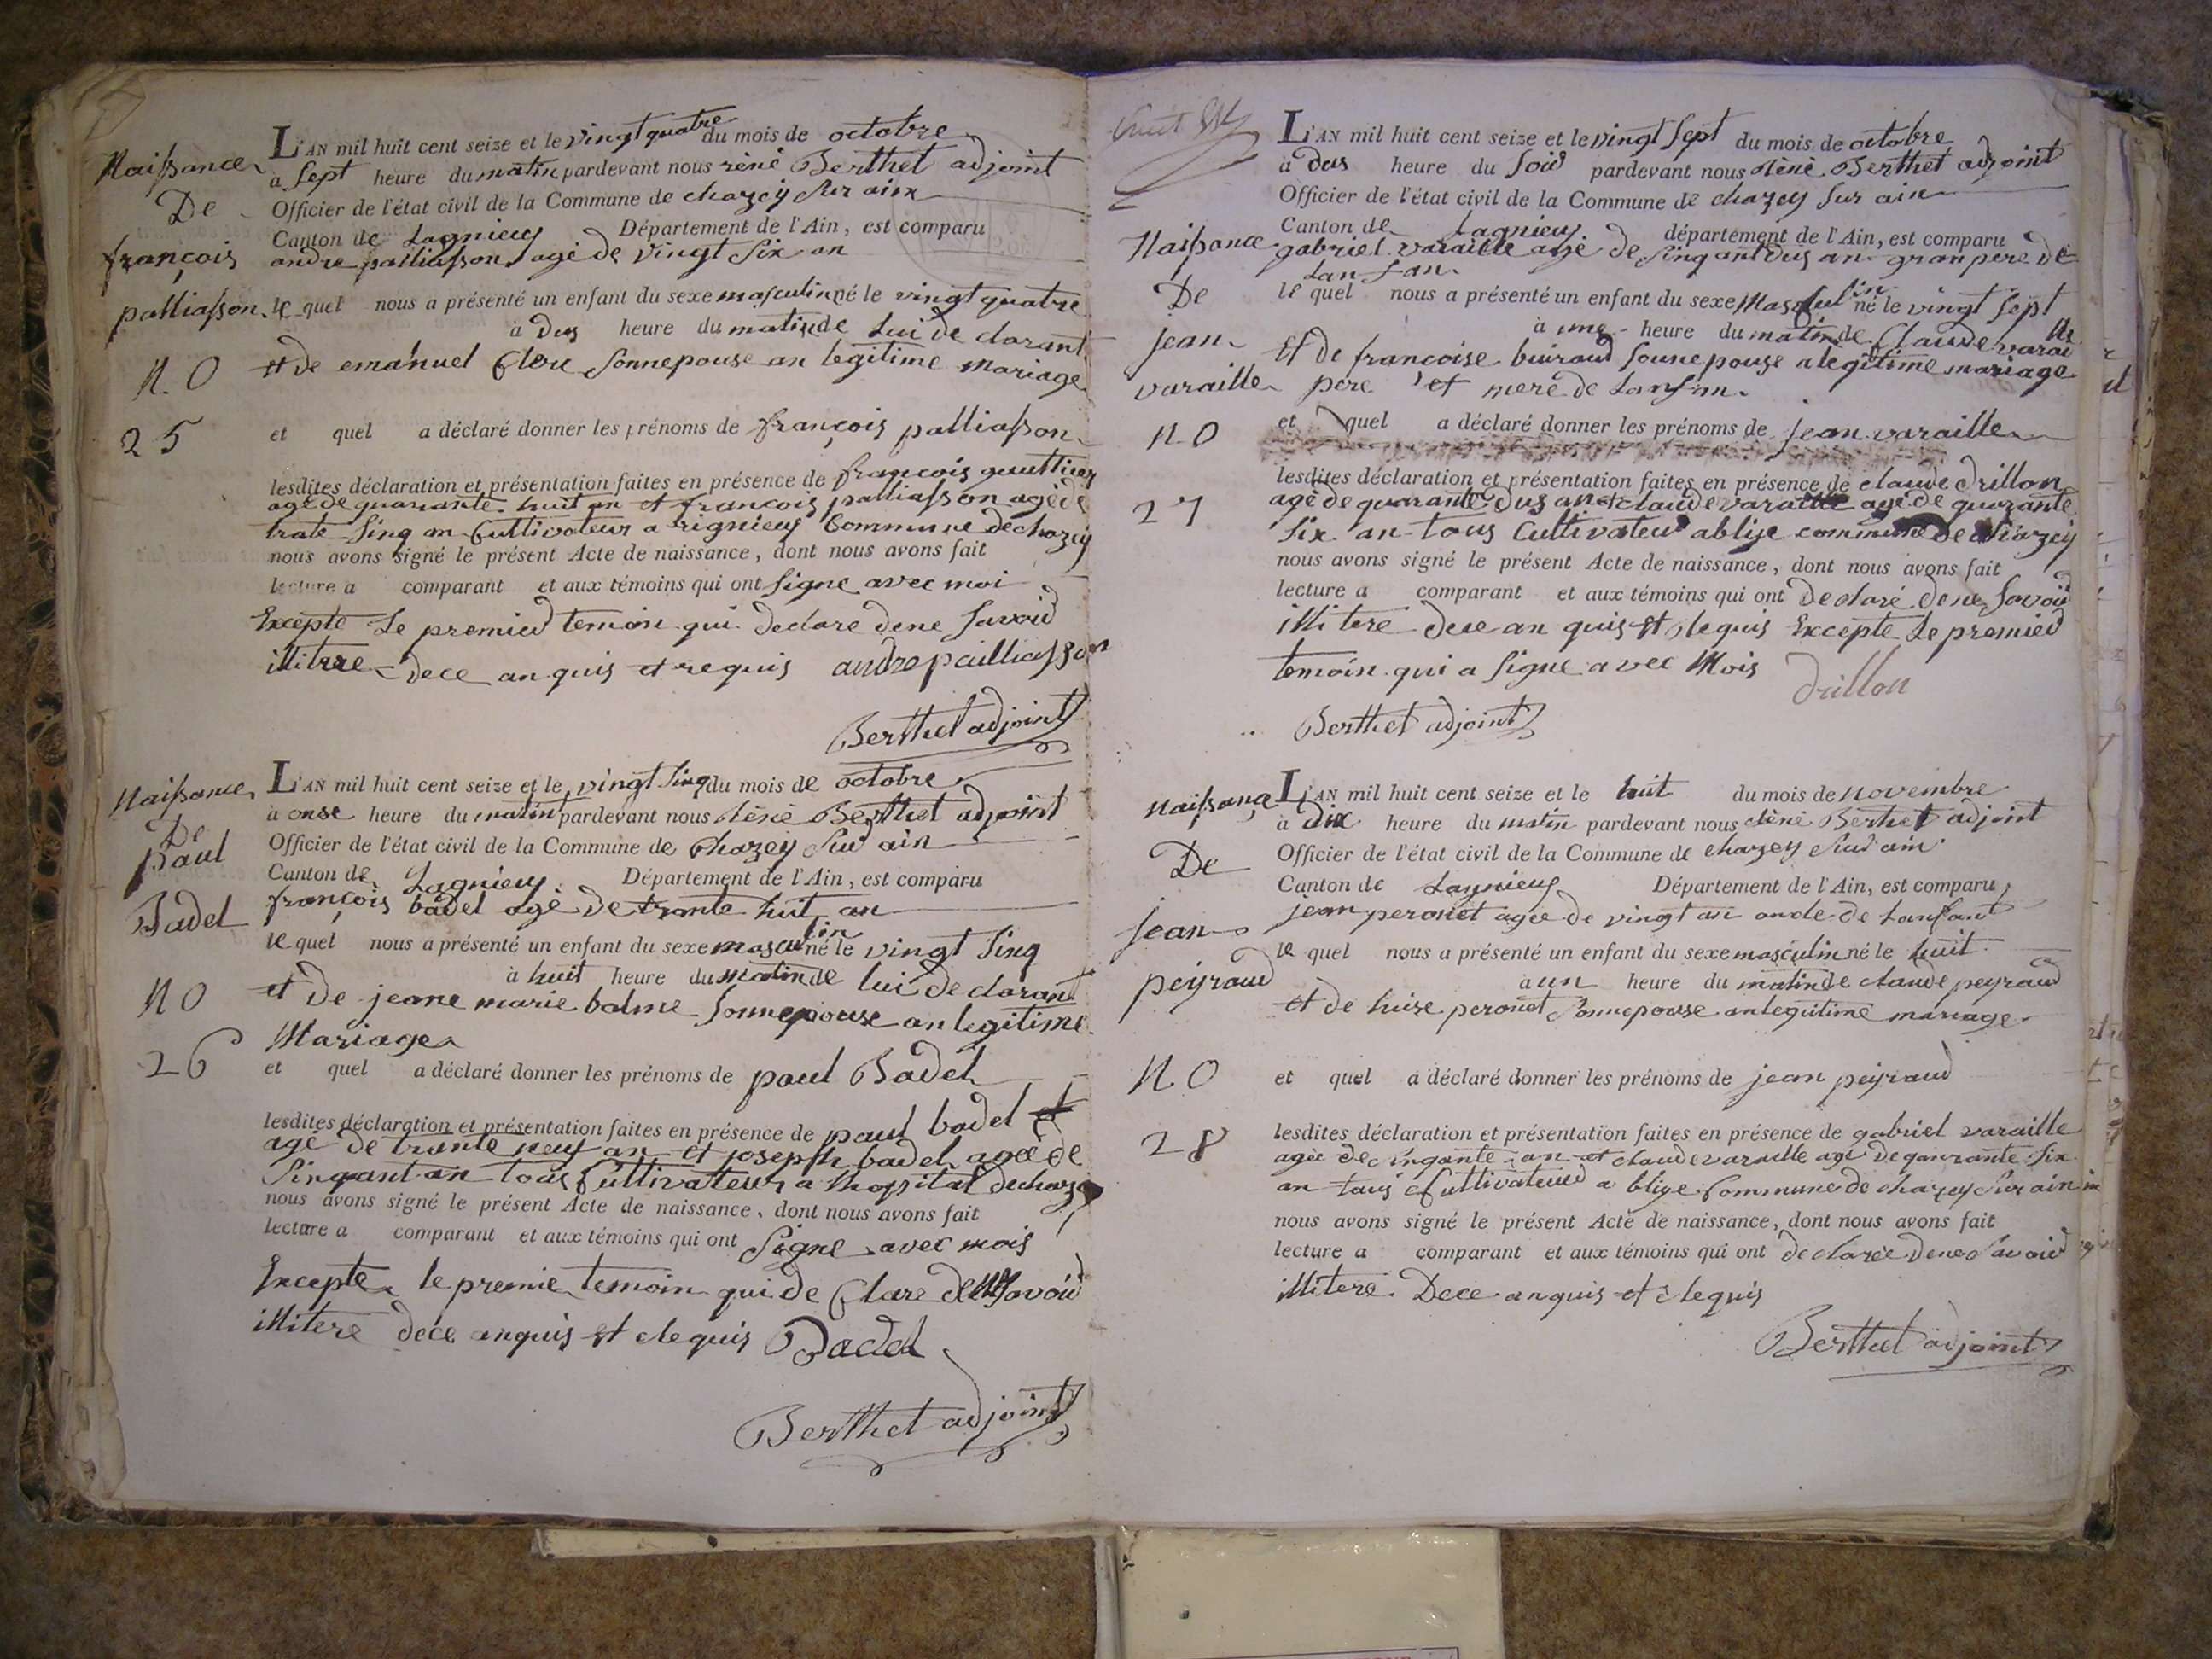 Naissance
De
françois
palliasson
N.O
25
L'AN mil huit cent seize et le vingt quatre du mois de octobre
a sept heure du matin pardevant nous réné Berthet adjoint
Officier de l'état civil de la Commune de chazey sur ain
Canton de Lagnieu Département de l'Ain, est comparu
andre palliasson agé de vingt six an
le quel nous a présenté un enfant du sexe masculin né le vingt quatre
à dus heure du matin de Lui de clarant
et de emanuel Clere sonnepouse an legitime mariage
et quel a déclaré donner les prénoms de françois palliasson
lesdites déclaration et présentation faites en présence de françois
age de quarante huit an et françois palliasson agé de
trate sing an Cultivateur a rignieux Commune de chazey
nous avons signé le présent Acte de naissance, dont nous avons fait
lecture a comparant et aux témoins qui ont signe avec moi
Excepte Le premied temoin qui declare dene savoid
illitere dece an quis et requis andre pailliasson
Berthet adjoint
Naissance
De
paul
Badel
NO
26
L'AN mil huit cent seize et le vingt sinq du mois de octobre
à onse heure du matin pardevant nous réné Berthet adjoint
Officier de l'état civil de la Commune de Chazey sur ain
Canton de Lagnieu Département de l'Ain, est comparu
françois badel agé de trante huit an
le quel nous a présenté un enfant du sexe masculin né le vingt sinq
à huit heure du matin de lui de clarant
et De jeane marie balme sonnepouse an legitime
Mariage
et quel a déclaré donner les prénoms de paul Badel
lesdites déclaration et présentation faites en présence de paul badel et
agé de trante neuf an et joseph badel agée de
singant an tous Cultivateur a lhopital de chazey
nous avons signé le présent Acte de naissance, dont nous avons fait
lecture a comparant et aux témoins qui ont signe avec mois
Excepte le premie temoin qui de Clare savoid
illitere dece anquis et requis Badel
Berthet adjoint
huit
Naissance
De
jean
varaille
NO
27
L'AN mil huit cent seize et le vingt sept du mois de octobre
à dus heure du soid pardevant nous réné Berthet adjoint
Officier de l'état civil de la Commune de chazey sur ain
Canton de Lagnieu département de l'Ain, est comparu
gabriel varaille agé de singant dus an gran pere de
Lan fan
le quel nous a présenté un enfant du sexe Masculin né le vingt sept
à une heure du matin de Claude varaille
et de francoise buiraud sounepouse a legitime mariage
pere et mere de Lanfan
et quel a déclaré donner les prénoms de jean varaille
lesdites déclaration et présentation faites en présence de claude drillon
agé de quarante dus an et claude varaille agé de quarante
six an tous Cultivateur a blije commune de chazey
nous avons signé le présent Acte de naissance, dont nous avons fait
lecture a comparant et aux témoins qui ont declaré dene savoid
illitere dece an quis et requis Excepte Le premied
temoin qui a signe avec Mois drillon
Berthet adjoint
Naissance
De
jean
peyraud
NO
28
L'AN mil huit cent seize et le huit du mois de novembre
à dix heure du matin pardevant nous réné Berthet adjoint
Officier de l'état civil de la Commune de chazey sur ain
Canton de Lagnieu Département de l'Ain, est comparu
jean peronet agee de vingt an oncle de lanfant
le quel nous a présenté un enfant du sexe masculin né le huit
à un heure du matin de claude peyraud
et de luise peronet sonnepouse an legitime mariage
et quel a déclaré donner les prénoms de jean peyraud
lesdites déclaration et présentation faites en présence de gabriel varaille
agée de singante an et claude varaille agé de quarante six
an tous Cultivateur a blije Commune de chazey sur ain
nous avons signé le présent Acte de naissance, dont nous avons fait
lecture a comparant et aux témoins qui ont declarée dene savoid
illitere Dece anquis et requis
Berthet adjoint